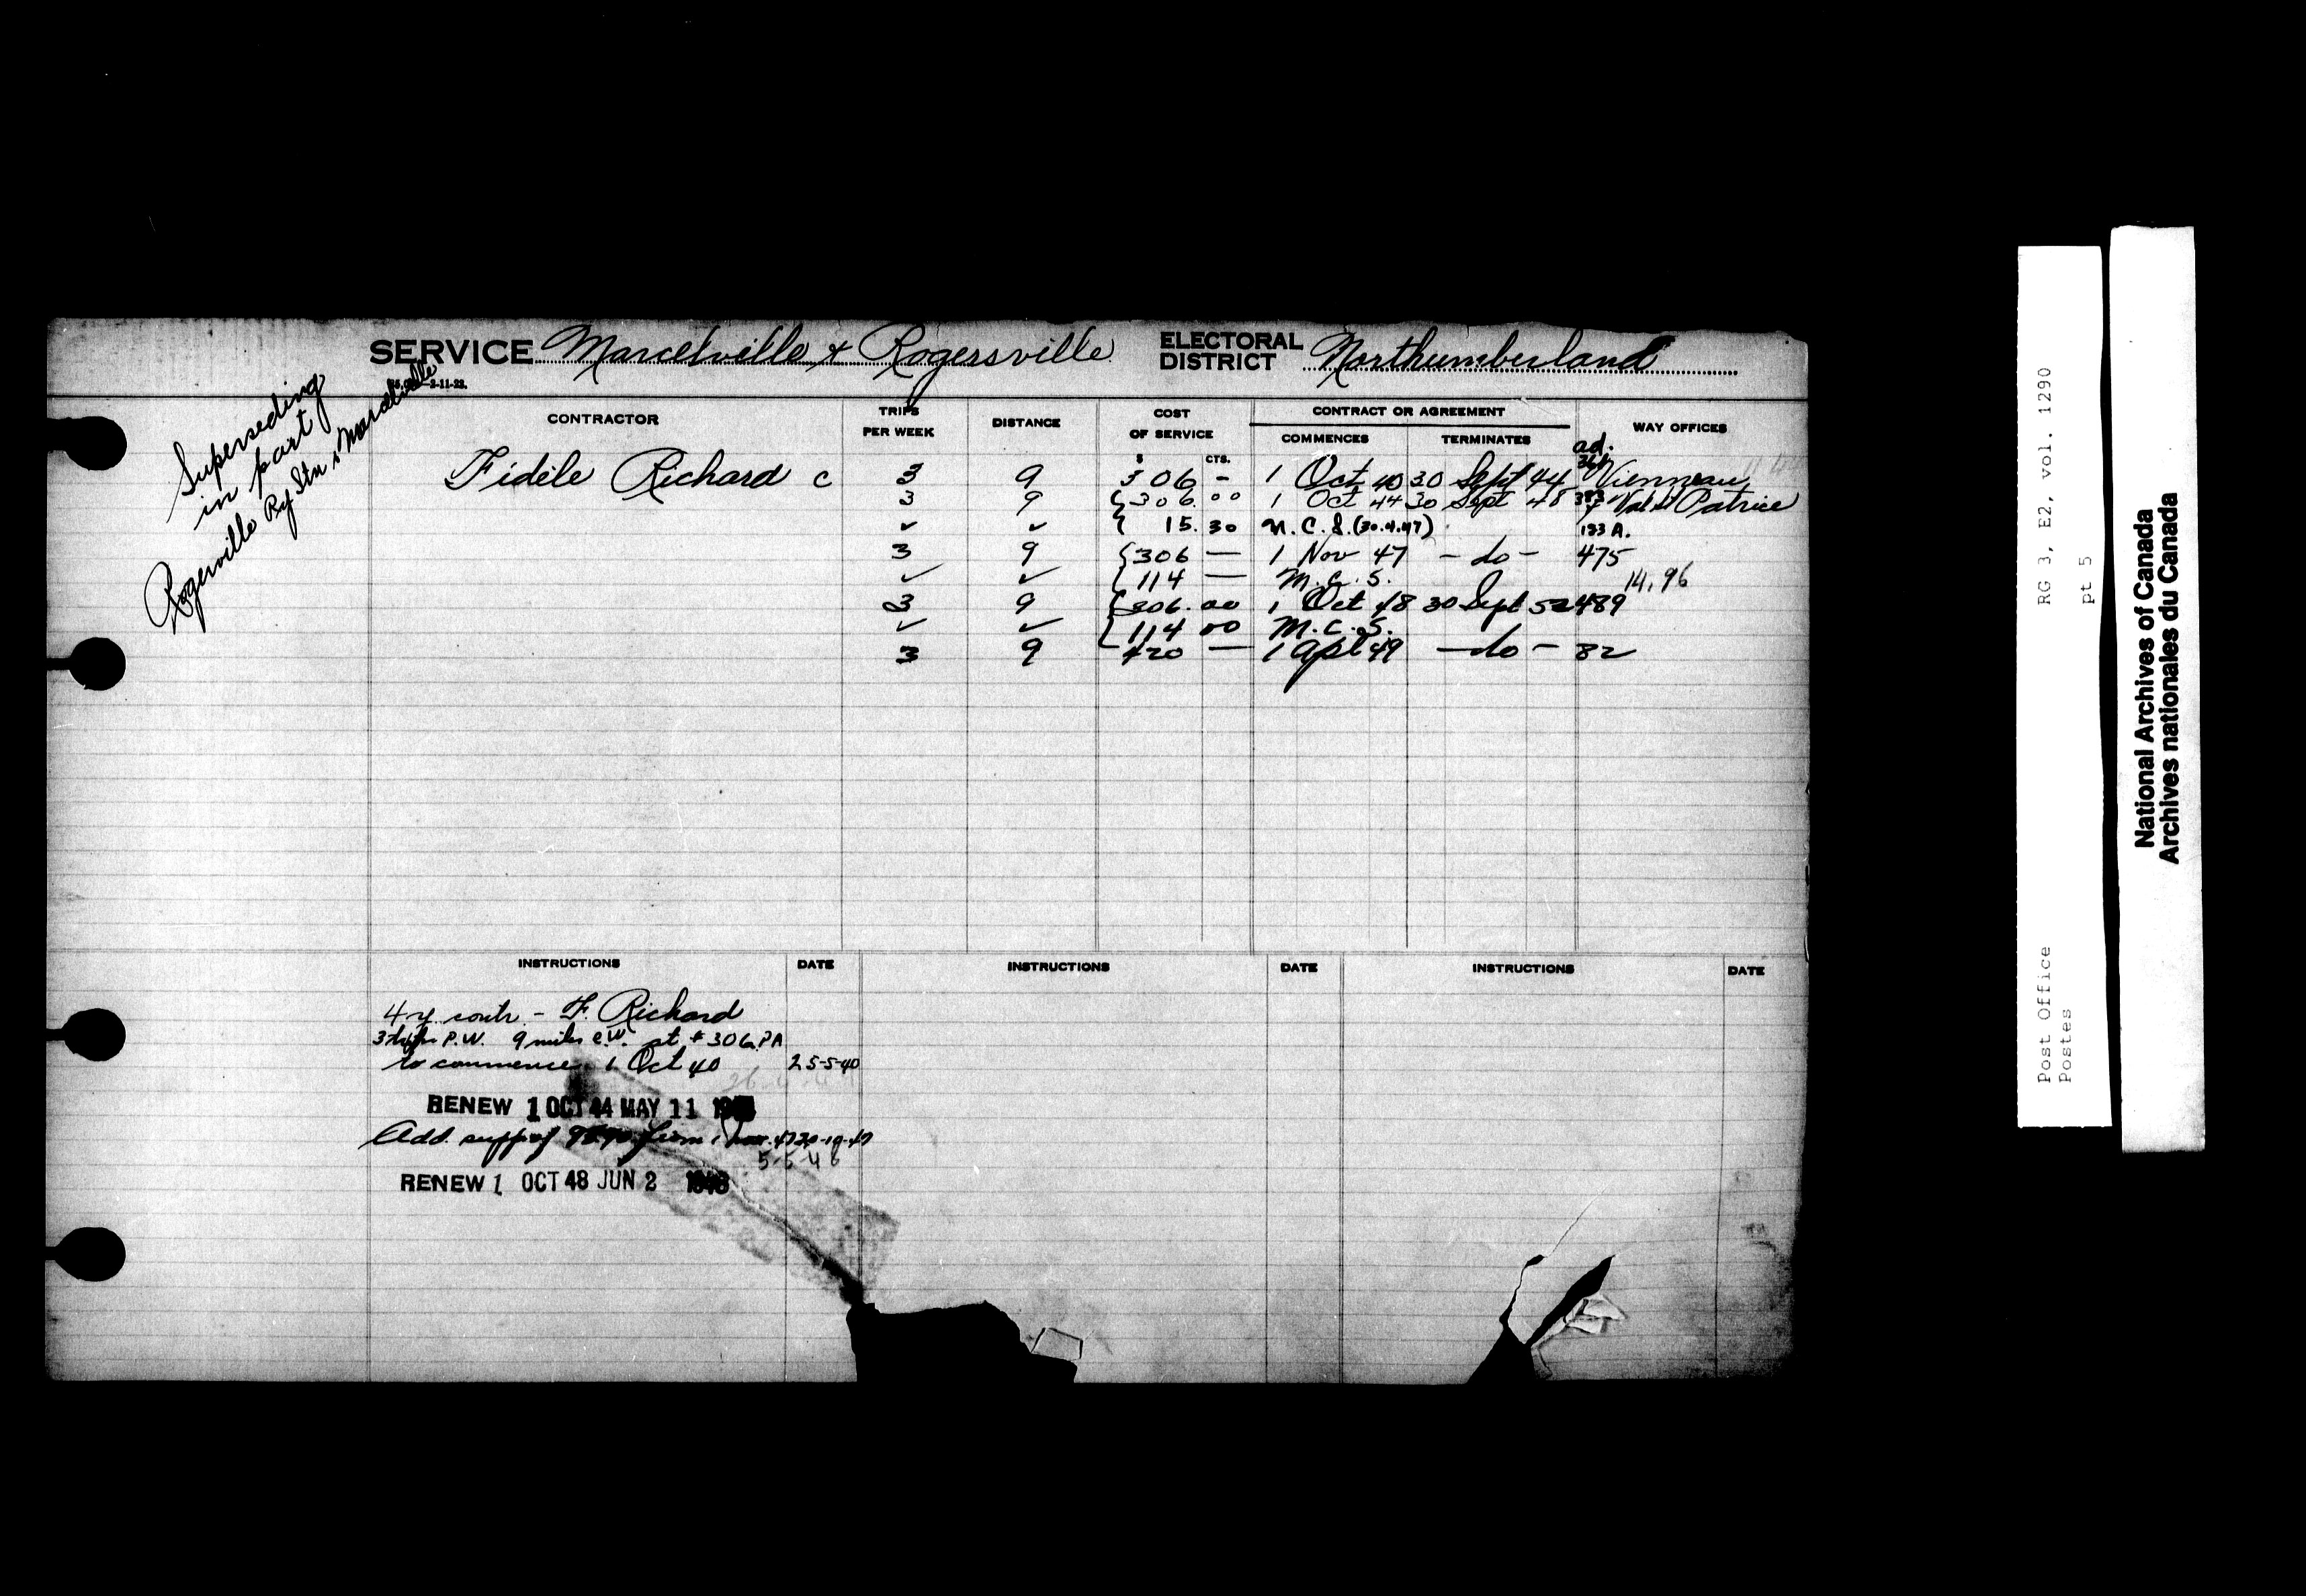 SERVICE Marcelville & Rogersville ELECTORAL DISTRICT Northumberland
3-11-22.
Superseding
in part
Rogerville Ry Stn & Marcelville
CONTRACTOR TRIPS PER WEEK DISTANCE COST OF SERVICE CONTRACT OR AGREEMENT WAY OFFICES
COMMENCES TERMINATES
$ CTS. ad.
Fidèle Richard c 3 9 306 - 1 Oct 40 30 Sept 44 Vienneau
3 9 306.00 1 Oct 44 30 Sept 48 Val St Patrice
✓ ✓ 15.30 N.C.S. (30.4.47) 133 A.
3 9 306 — 1 Nov 47 - do - 475
✓ ✓ 114 — M.C.S. 14,96
3 9 306.00 1 Oct 48 30 Sept 52 489
✓ ✓ 114 00 M.C.S.
3 9 420 — 1 Apl 49 - do - 82
INSTRUCTIONS DATE INSTRUCTIONS DATE INSTRUCTIONS DATE
4 y contr. - F. Richard
3 trips P.W. 9 miles e.w. at $306 PA
to commence 1 Oct 40 25-5-40
RENEW 1 OCT 44 MAY 11
Add. supp of from 1 Nov. 47 20-10-47
5-5-48
RENEW 1 OCT 48 JUN 2 1948
Post Office RG 3, E2, vol. 1290
Postes pt 5
National Archives of Canada
Archives nationales du Canada